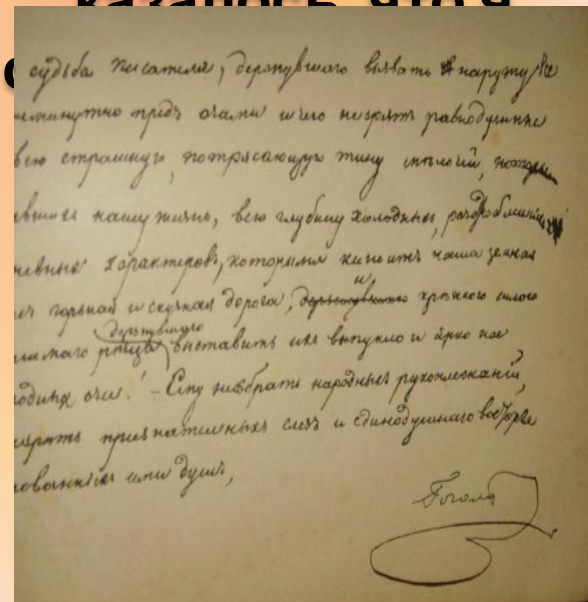 казалось, что я
судьба писателя, дерзнувшаго вызвать наружу все
еминутно предъ очами и чего не зрятъ равнодушные
всю страшную, потрясающую тину мелочей,
нашу жизнь, всю глубину холодныхъ, раздробленныхъ
невныхъ характеровъ, которыми кишитъ наша земная
горькая и скучная дорога, и крѣпкою силою
дерзнувшаго
рѣзца выставить ихъ выпукло и ярко на
родныя очи! – Ему не собрать народныхъ рукоплесканій,
зрѣть признательныхъ слезъ и единодушнаго восторга
ованныхъ имъ душъ,
Гоголь